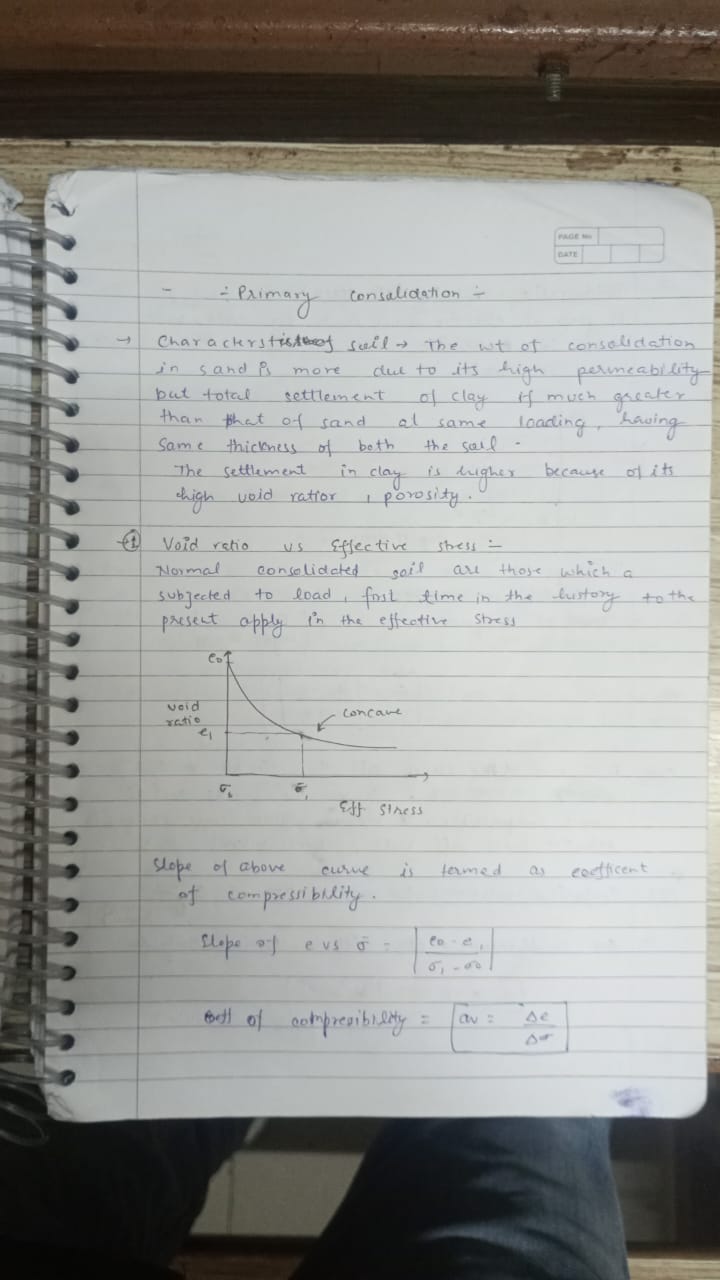 PAGE No
DATE
- ÷ Primary consalidation ÷
→ Characterstisticsof soil → The wt of consolidation
in sand is more due to its high permeability
but total settlement of clay if much greater
than that of sand at same loading, having
Same thickness of both the soil.
The settlement in clay is higher because of its
high void ratior, porosity.
1 Void ratio vs Effective stress :-
Normal consolidated soil are those which a
subjected to load, first time in the history to the
present apply in the effective stress
e0
void
ratio
e1
concave
σ0 σ̄1
Eff stress
Slope of above curve is termed as coefficent
of compressibility.
Slope of e vs σ̄ = | e0 - e1 / σ1 - σ0 |
of compresibility = av = Δe / Δσ